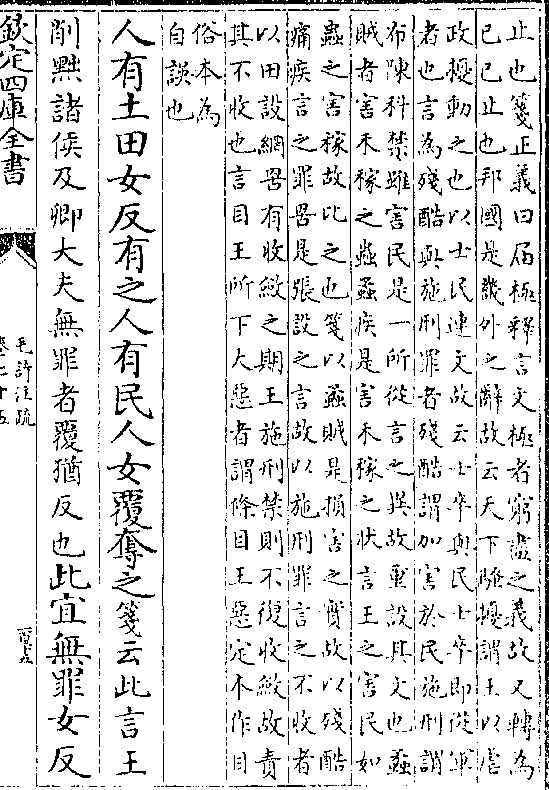 止也箋正義曰屆極釋言文極者窮盡之義故又轉為
已已止也邦國是畿外之辭故云天下騷擾謂王以虐
政擾動之也以士民連文故云士卒與民士卒即從軍
者也言為殘酷與施刑罪者殘酷謂加害於民施刑謂
布陳科禁雖害民是一所從言之異故重設其文也蟊
賊者害禾稼之蟲蟊疾是害禾稼之狀言王之害民如
蟲之害稼故比之也箋以蟊賊是損害之實故以殘酷
痛疾言之罪罟是張設之言故以施刑罪言之不收者
以田設網罟有收斂之期王施刑禁則不復收斂故責
其不收也言目王所下大惡者謂條目王惡定本作目
俗本為
自誤也
人有土田女反有之人有民人女覆奪之箋云此言王
削黜諸侯及卿大夫無罪者覆猶反也此宜無罪女反
欽定四庫全書
毛詩注疏
卷二十五